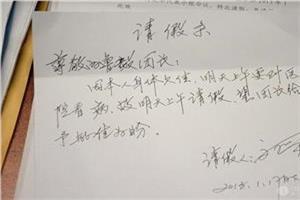 请假条
尊敬的鲁教团长:
因本人身体欠佳,明天上午要到医
院看病,故明天上午请假,望团长给
予批准为盼。
请假人:
2015.1.17